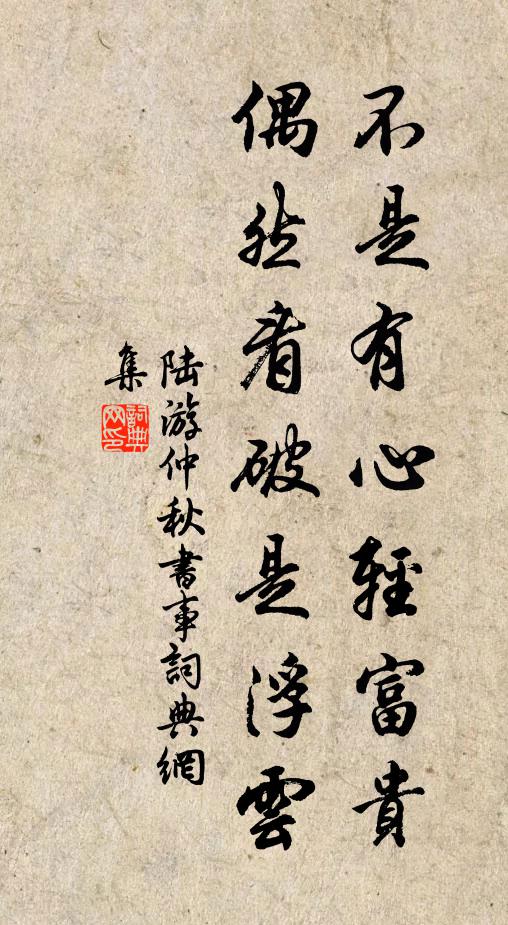 不是有心輕富貴
偶然看破是浮雲
陸游仲秋書事詞典網
集
詞典网印